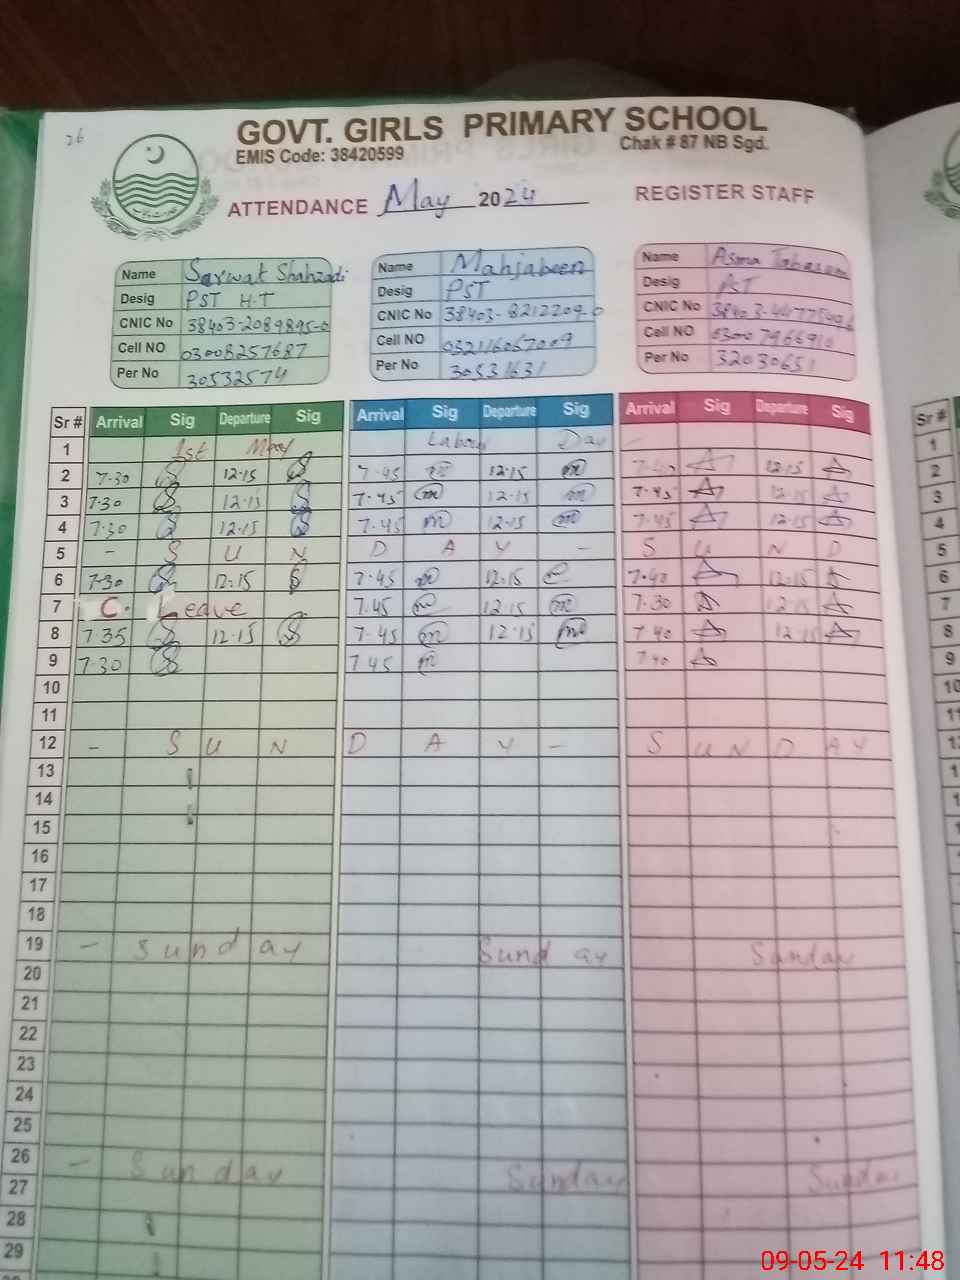 26
GOVT. GIRLS PRIMARY SCHOOL
EMIS Code: 38420599 Chak # 87 NB Sgd.
ATTENDANCE May 2024 REGISTER STAFF
Name Sarwat Shahzadi Name Mahjabeen Name Asma Tabasum
Desig PST H.T Desig PST Desig PST
CNIC No 38403-2089895-0 CNIC No 38403-8212209-0 CNIC No
Cell NO 03008257687 Cell NO Cell NO 03007966910
Per No 30532574 Per No 30531631 Per No 32030651
Sr # Arrival Sig Departure Sig Arrival Sig Departure Sig Arrival Sig Departure Sig
1 1st May Labour Day
2 7.30 12.15 7.45 m 12.15 m 7.40 12.15
3 7.30 12.15 7.45 m 12.15 m 7.45 12.15
4 7.30 12.15 7.45 m 12.15 m 7.45 12.15
5 - S U N D A Y - S U N D
6 7.30 12.15 7.45 m 12.15 7.40 12.15
7 C. Leave 7.45 m 12.15 m 7.30 12.15
8 7.35 12.15 7.45 m 12.15 m 7.40 12.15
9 7.30 7.45 m 7.40
10
11
12 - S U N D A Y - S U N D A Y
13
14
15
16
17
18
19 - Sunday Sunday Sunday
20
21
22
23
24
25
26 - Sunday Sunday Sunday
27
28
29
Sr #
1
2
3
4
5
6
7
8
9
10
11
09-05-24 11:48